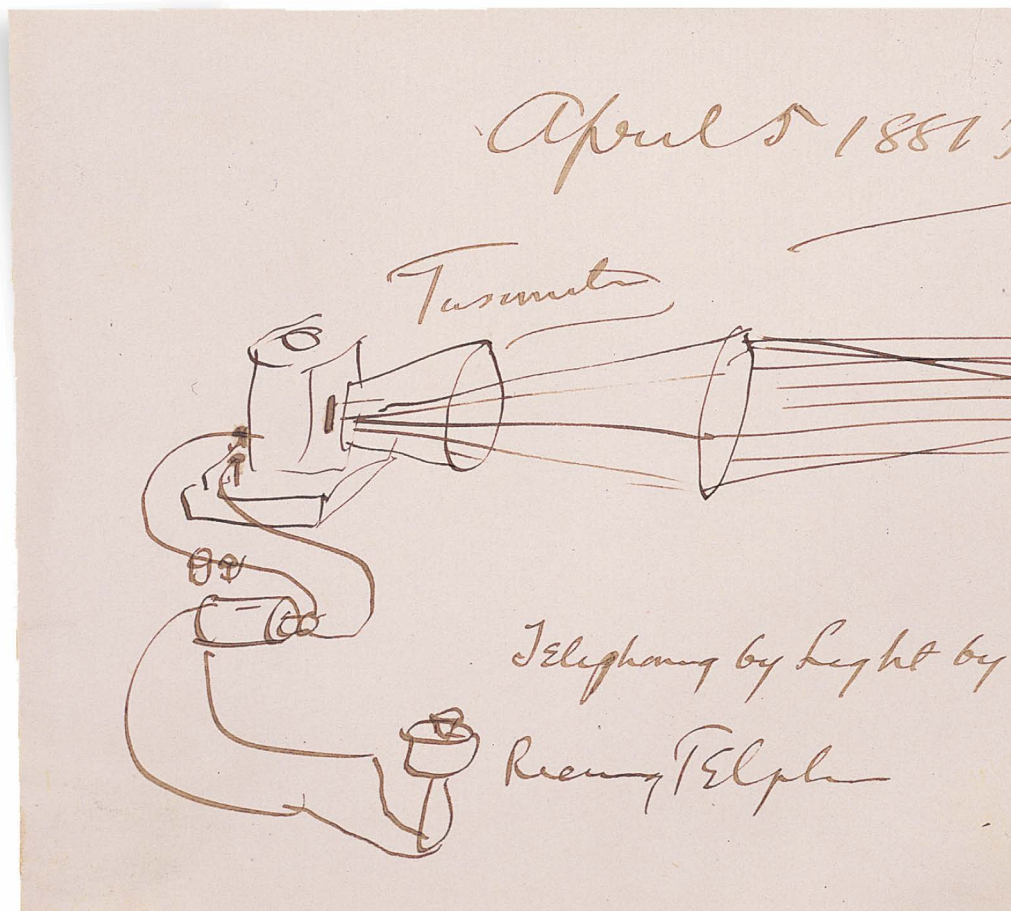 April 5 1881
Tasimeter
Telephoning by Light by
Receiving Telephone